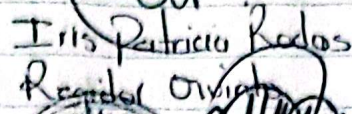 Iris Patricia Rodas
Regidor